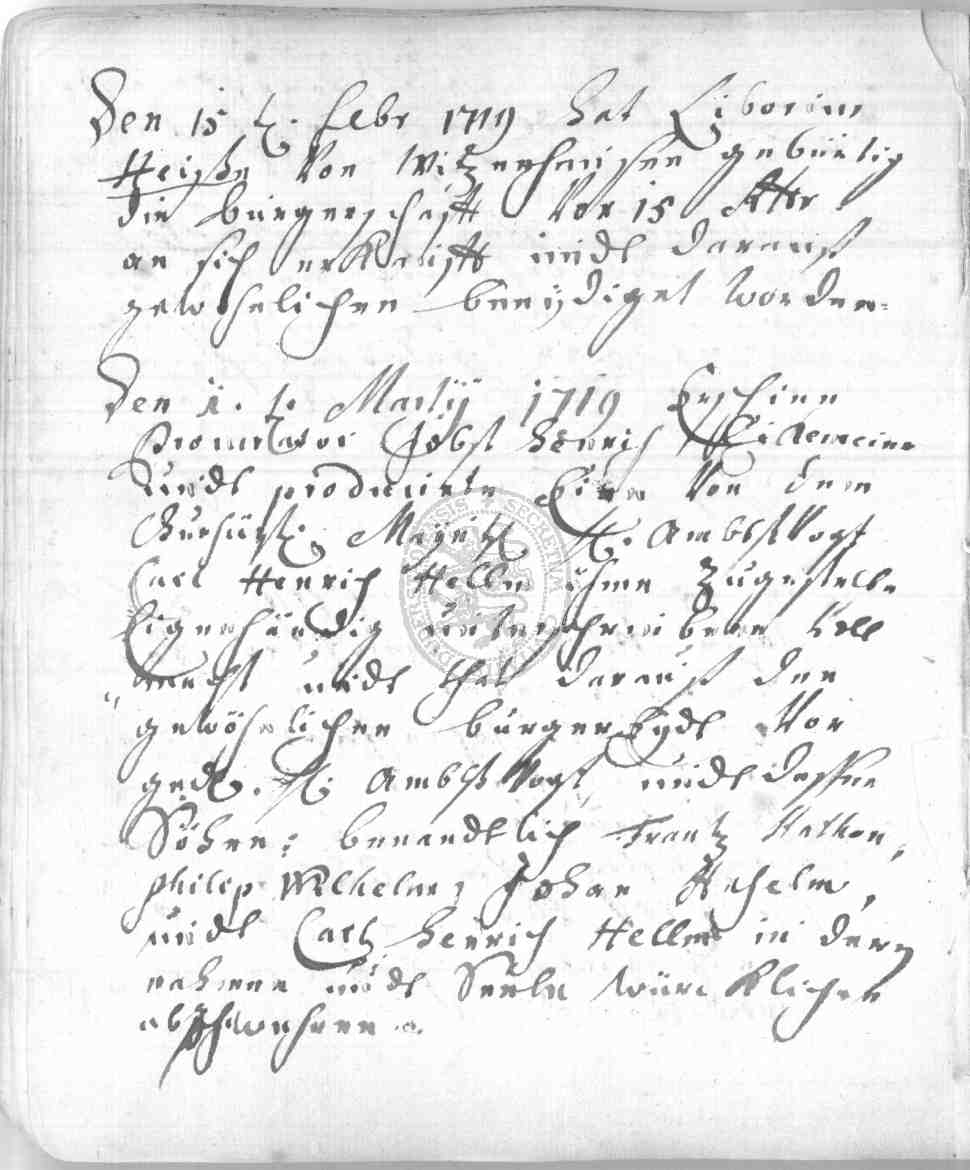 Den 15 t. Febr 1719 hat Liborius
Heise von Witzenhausen gebürtig
die bürgerschafft vor 15
an sich erkaufft undt darauff
gewöhnlichen beeydiget worden.
Den 1. t. Martij 1719 Erschine
Procurator Jobst Henrich
undt producirte Eine von dem
Churfürstl. Mayntz H. Ambtsvogt
Carl Henrich Hellm ihme zugestelte
Eigenhändig unterschriebene Voll
macht undt that darauff den
gewöhnlichen bürger Eydt vor
gedl. H. Ambtsvogt undt dessen
Söhne: benandtlich Frantz
Philip Wilhelm, Johan Anselm,
undt Carl Henrich Hellm in deren
nahmen undt Seele würcklichen
abschwehren.
SECRETA